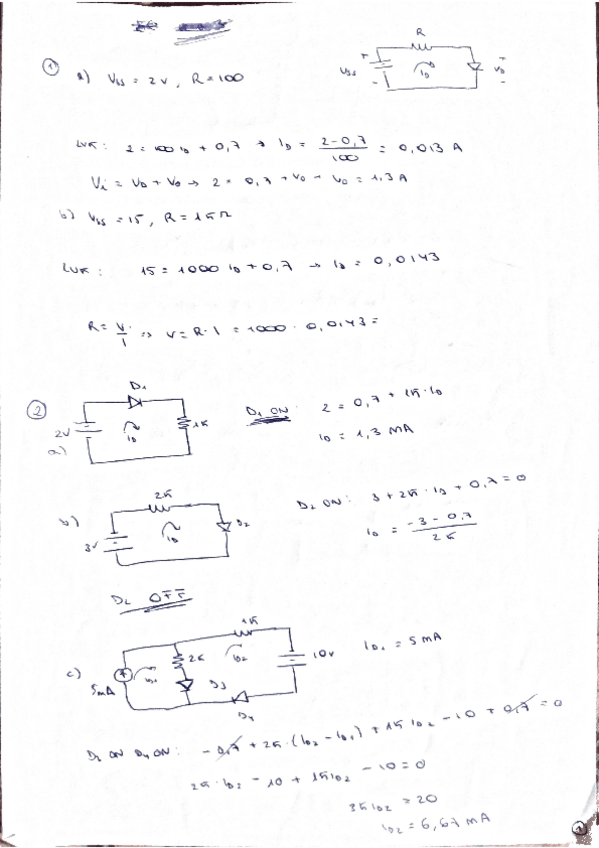 R
① a) Vss = 2V, R=100
Vss + - iD + VD -
LVK: 2 = 100 iD + 0,7 → iD = 2-0,7/100 = 0,013 A
Vi = VD + VO → 2 = 0,7 + VO → VO = 1,3 A
b) Vss = 15, R = 1KΩ
LVK: 15 = 1000 iD + 0,7 → iD = 0,0143
R = V/I => V = R·I = 1000 · 0,0143 =
②
D1
2V iD 1K
a)
D1 ON: 2 = 0,7 + 1K·iD
iD = 1,3 MA
2K
b) 3V iD D2
D2 ON: 3 + 2K·iD + 0,7 = 0
iD = -3-0,7/2K
D2 OFF
1K
c) 5mA iD1 2K iD2 10V
D3
D4
iD1 = 5 mA
D3 ON D4 ON: -0,7 + 2K·(iD2 - iD1) + 1K iD2 - 10 + 0,7 = 0
2K·iD2 - 10 + 1K iD2 - 10 = 0
3K iD2 = 20
iD2 = 6,67 mA
1